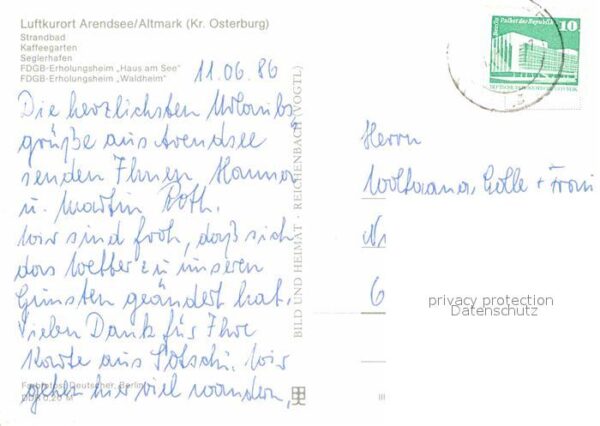 Luftkurort Arendsee/Altmark (Kr. Osterburg)
Strandbad
Kaffeegarten
Seglerhafen
FDGB-Erholungsheim „Haus am See"
FDGB-Erholungsheim „Waldheim"
11.06.86
Die herzlichsten Urlaubs
grüße aus Arendsee
senden Ihnen Hanna
u. Martin Roth.
Wir sind froh, daß sich
das Wetter zu unseren
Gunsten geändert hat.
Vielen Dank für Ihre
Karte aus Sotschi. Wir
gehen hier viel wandern,
Farbfotos: Deutscher, Berlin
BILD UND HEIMAT · REICHENBACH (VOGTL)
Berlin Palast der Republik 10
Herrn
Wolfgang Golle + Frau
privacy protection
Datenschutz